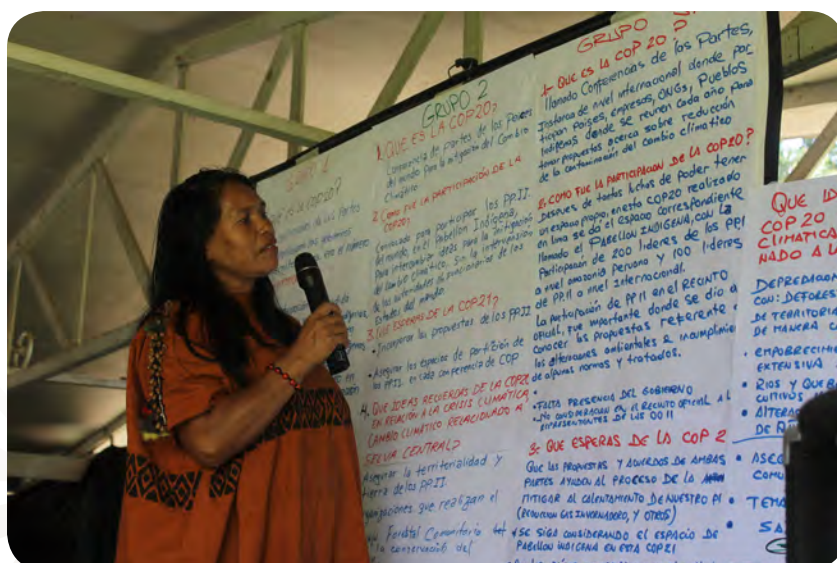 GRUPO 1
COP20?
de las Partes
GRUPO 2
1. QUE ES LA COP20?
Conferencia de Partes, de los Países
del mundo Para la mitigación del Cambio
Climático
2. COMO FUE LA PARTICIPACIÓN DE LA
COP20?
Convocado para participar los PP.II.
del mundo en el Pabellon Indígena,
Para intercambiar ideas para la mitigación
del cambio climático. Sin la intervención
de las autoridades o funcionarios de los
Estados del mundo.
3. QUE ESPERAMOS DE LA COP21?
• Incorporar las propuestas de los PP.II
• Asegurar los espacios de partición de
los PP.II. en cada conferencia de COP
4. QUE IDEAS RECUERDAS DE LA COP20,
EN RELACIÓN A LA CRISIS CLIMATICA,
CAMBIO CLIMÁTICO RELACIONADO A
SELVA CENTRAL?
Asegurar la territorialidad y
tierra de los PP.II.
que realizan el
Forestal Comunitario
la conservación del
GRUPO
1- QUE ES LA COP 20?
llamado Conferencias de las Partes,
Instancia de nivel internacional donde par
ticipan Países, empresas, ONGs, Pueblos
Indígenas donde se reunen cada año para
tomar propuestas acerca sobre reducción
de la contaminación del cambio climatico
2. COMO FUE LA PARTICIPACION DE LA COP20?
Después de tantas luchas de poder tener
un espacio propio, en esta COP20 realizado
en lima se da el espacio correspondiente
llamado el PABELLON INDIGENA, CON LA
Participación de 200 lideres de los PPI
a nivel amazonia Peruana y 100 lideres
de PP.II a nivel Internacional.
La participación de PP II en el RECINTO
OFICIAL, fue importante donde se dio a
conocer las propuestas referente a
las alteraciones ambientales e incumplimie
de algunas normas y tratados.
• FALTA PRESENCIA DEL GOBIERNO
• NO CONSIDERARON EN EL RECINTO OFICIAL A L
REPRESENTANTES DE LAS OO II
3- QUE ESPERAS DE LA COP 2
QUE LAS PROPUESTAS Y ACUERDOS DE AMBAS
PARTES AYUDEN AL PROCESO DE LA
MITIGAR AL CALENTAMIENTO DE NUESTRO PI
(REDUCCION GAS INVERNADERO, Y OTROS)
• SE SIGA CONSIDERANDO EL ESPACIO DE
PABELLON INDIGENA EN ESTA COP21
QUE ID
COP 20
CLIMATICA
NADO A L
DEPREDACION
CON: DEFORES
DE TERRITORIA
DE MANERA
• EMPOBRECIMI
EXTENSIVA
• RIOS Y QUEB
CULTIVOS
• ALTERA
DE
• ASEG
COMU
• TEMA
SA